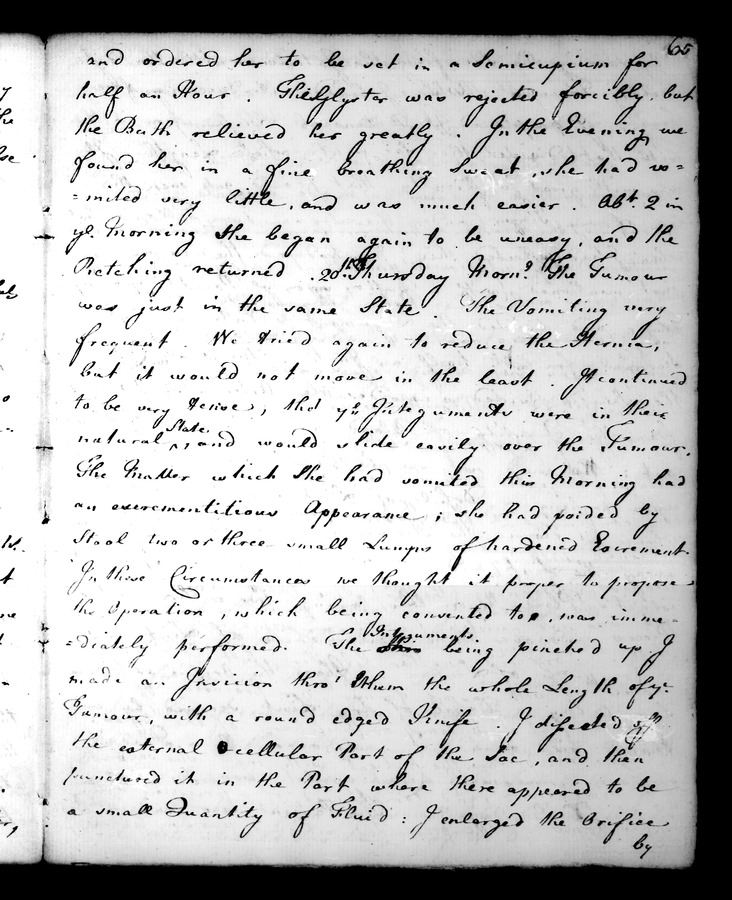 65
and ordered her to be set in a Semicupium for
half an Hour. The Glyster was rejected forcibly, but
the Bath relieved her greatly. In the Evening, we
found her in a fine breathing Sweat, she had vo=
=mited very little, and was much easier. Abt. 2 in
ye. Morning She began again to be uneasy, and the
Retching returned. 20th. Thursday Morng. The Tumour
was just in the same State. The Vomiting very
frequent. We tried again to reduce the Hernia,
but it would not move in the least. It continued
to be very tense, tho' ye Integuments were in their
natural State, and would slide easily over the Tumour.
The Matter which She had vomited this Morning had
an excrementitious Appearance; she had poided by
Stool two or three small Lumps of hardened Excrement.
In these Circumstances we thought it proper to propose
the Operation, which being consented to, was imme-
=diately performed. The Integuments being pinched up I
made an Incision thro' them the whole Length of ye.
Tumour, with a round edged Knife. I dissected
the external cellular Part of the Sac, and then
punctured it in the Part where there appeared to be
a small Quantity of Fluid: I enlarged the Orifice
by